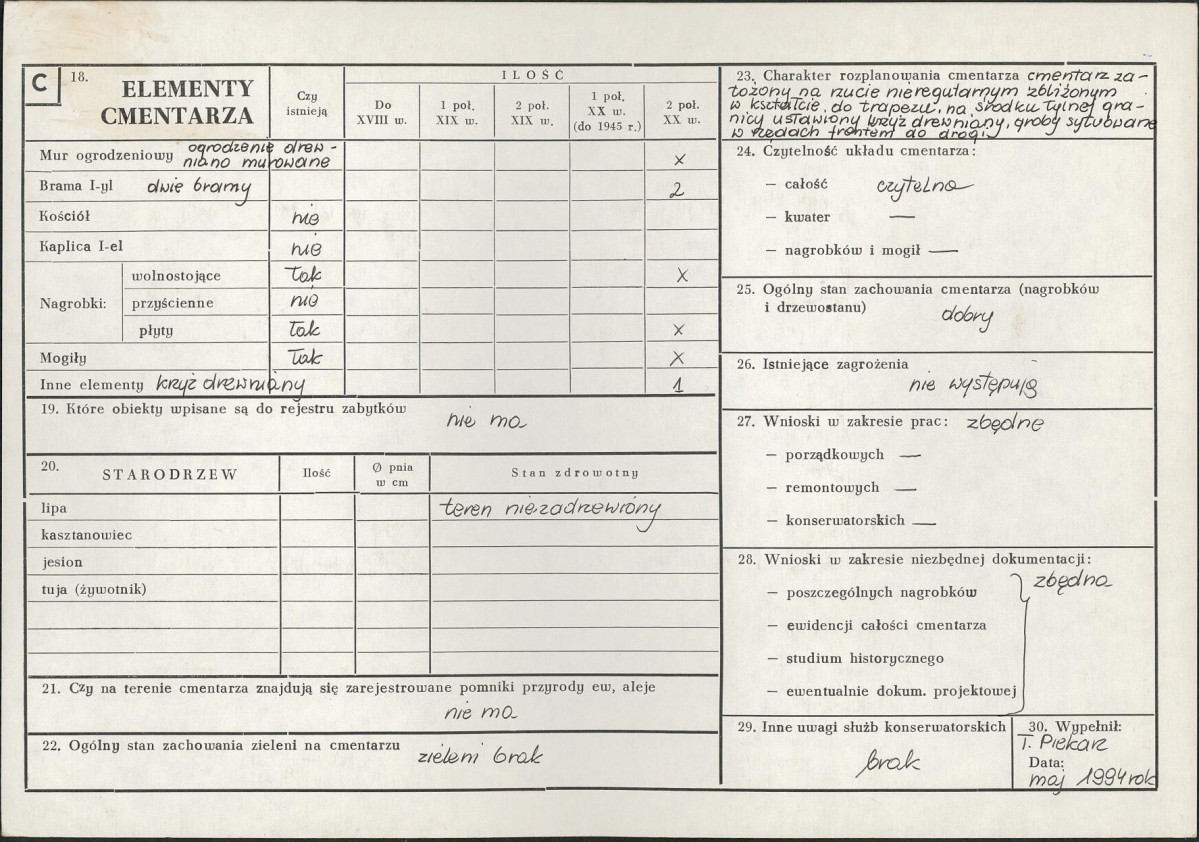 C
18. ELEMENTY CMENTARZA
Czy istnieją
ILOŚĆ
Do XVIII w.
1 poł. XIX w.
2 poł. XIX w.
1 poł. XX w. (do 1945 r.)
2 poł. XX w.
Mur ogrodzeniowy ogrodzenie drew-
niano murowane x
Brama I-yl dwie bramy 2
Kościół nie
Kaplica I-el nie
Nagrobki:
wolnostojące tak x
przyścienne nie
płyty tak x
Mogiły tak x
Inne elementy krzyż drewniany 1
19. Które obiekty wpisane są do rejestru zabytków
nie ma
20. STARODRZEW
Ilość
Ø pnia w cm
Stan zdrowotny
lipa teren niezadrzewiony
kasztanowiec
jesion
tuja (żywotnik)
21. Czy na terenie cmentarza znajdują się zarejestrowane pomniki przyrody ew, aleje
nie ma
22. Ogólny stan zachowania zieleni na cmentarzu zieleni brak
23. Charakter rozplanowania cmentarza cmentarz za-
łożony na rzucie nieregularnym zbliżonym
w kształcie do trapezu, na środku tylnej gra-
nicy ustawiony krzyż drewniany, groby sytuowane
w rzędach frontem do drogi
24. Czytelność układu cmentarza:
— całość czytelna
— kwater —
— nagrobków i mogił —
25. Ogólny stan zachowania cmentarza (nagrobków
i drzewostanu) dobry
26. Istniejące zagrożenia
nie występują
27. Wnioski w zakresie prac: zbędne
— porządkowych —
— remontowych —
— konserwatorskich —
28. Wnioski w zakresie niezbędnej dokumentacji:
zbędna
— poszczególnych nagrobków
— ewidencji całości cmentarza
— studium historycznego
— ewentualnie dokum. projektowej
29. Inne uwagi służb konserwatorskich
brak
30. Wypełnił:
T. Piekarz
Data:
maj 1994 rok